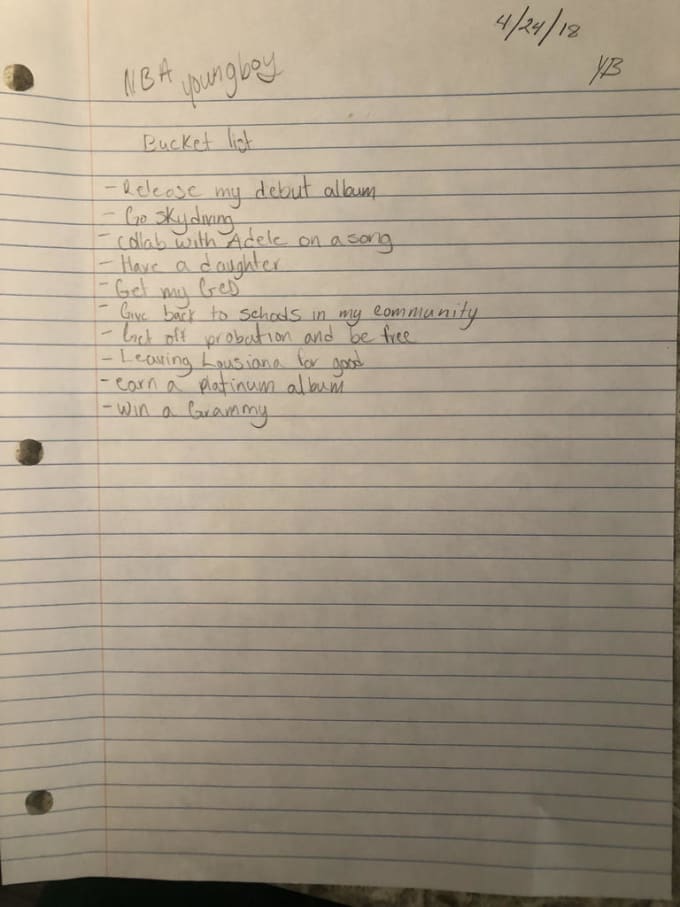 4/24/18
YB
NBA youngboy
Bucket list
- Release my debut album
- Go skydiving
- collab with Adele on a song
- Have a daughter
- Get my GED
- Give back to schools in my community
- Get off probation and be free
- Leaving Lousiana for good
- earn a platinum album
- Win a Grammy